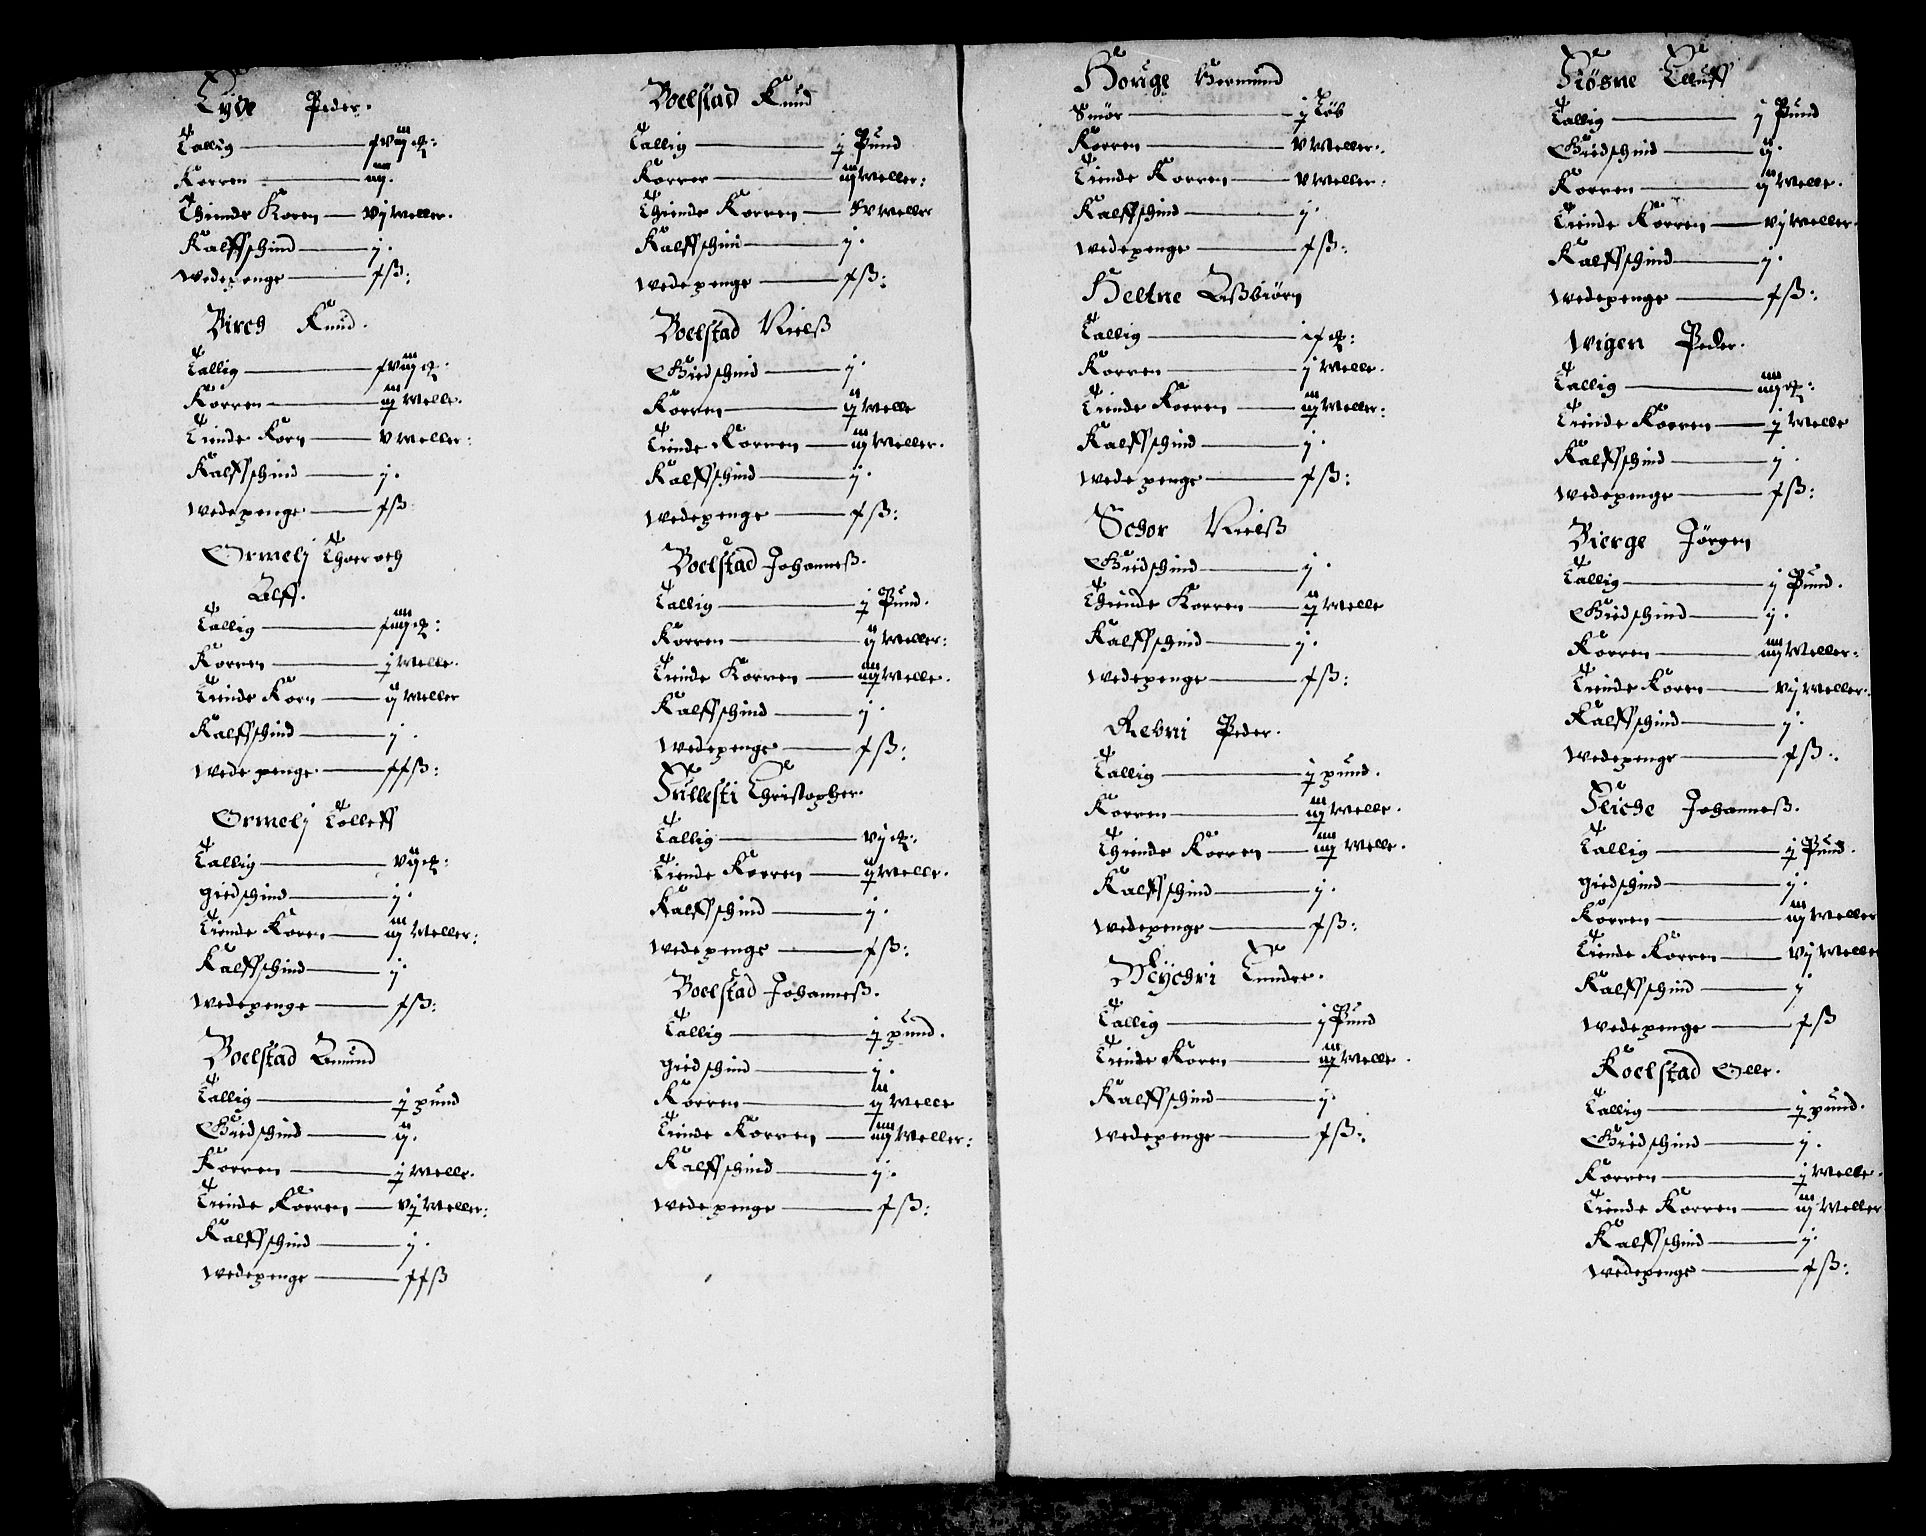 Lyde Peder.
Tallig — xviij ℔:
Korren — iiij.
Thiende Koren — vj Weller.
Kalffschind — j.
Wedepenge — j ß:
Birch Knud.
Tallig — xviij ℔:
Korren — iij Welle.
Tiende Korn — v Weller:
Kalffschind — j.
Wedepenge — j ß
Ormelj
Olff.
Tallig — xiiij ℔:
Korren — j Welle.
Tiende Korn — ij Weller
Kalffschind — j.
Wedepenge — ij ß:
Ormelj Tolleff
Tallig — vij ℔:
giedschind — j.
Tiende Koren — iij Weller:
Kalffschind — j.
Wedepenge — j ß:
Boelstad Amund
Tallig — j pund
Giedschind — ij.
Korren — j Welle.
Tiende Korren — vj Weller:
Kalffschind — j.
Wedepenge — ij ß
Boelstad Knud
Tallig — j Pund
Korrer — iij Weller:
Thiende Korren — Weller
Kalffschin — j.
Wedepenge — j ß:
Boelstad Nielß
Giedschind — j.
Korren — ij Welle
Tiende Korren — iij Weller.
Kalffschind — j.
Wedepenge — j ß:
Boelstad Johanneß.
Tallig — j Pund.
Korren — ij Weller:
Tiende Korren — iiij Welle.
Kalffschind — j.
Wedepenge — j ß:
Sullesti Christopher.
Tallig — vj ℔:
Tiende Korren — ij Welle.
Kalffschind — j.
Wedepenge — j ß:
Boelstad Johanneß.
Tallig — j pund.
giedschind — j.
Korren — ij Welle
Tiende Korren — iiij Weller:
Kalffschind — j.
Wedepenge — j ß:
Houge Hermund
Smør — j Løb
Korren — v Weller.
Tiende Korren — v Weller:
Kalffschind — j.
Wedepenge — j ß:
Heltne Aßbiørn
Tallig — ix ℔:
Korren — j Welle.
Tiende Korren — iij Weller:
Kalffschind — j.
Wedepenge — j ß:
Schor Nielß
Giedschind — j.
Thiende Korren — ij Welle
Kalffschind — j.
Wedepenge — j ß:
Rebni Peder.
Tallig — j pund.
Korren — iij Welle.
Thiende Korren — iiij Welle.
Kalffschind — j.
Wedepenge — j ß:
Mychri
Tallig — j Pund
Tiende Korren — iij Welle.
Kalffschind — j.
Wedepenge — j ß:
Siøsne Elluff
Tallig — j Pund
Giedschind — ij.
Korren — ij Welle.
Tiende Korren — vj Weller.
Kalffschind — j.
Wedepenge — j ß:
Wigen Peder.
Tallig — iiij ℔:
Tiende Korren — j Welle
Kalffschind — j.
Wedepenge — j ß:
Bierge Jørgen
Tallig — j Pund.
Giedschind — j.
Korren — iiij Weller:
Tiende Koren — vj Weller.
Kalffschind — j.
Wedepenge — j ß:
Sliche Johanneß.
Tallig — j Pund.
giedschind — j.
Korren — iij Weller
Tiende Korren — vj Weller
Kalffschind — j
Wedepenge — j ß
Koelstad Olle.
Tallig — j pund.
Giedschind — j.
Korren — j Welle.
Tiende Korren — iij Weller
Kalffschind — j.
Wedepenge — j ß: